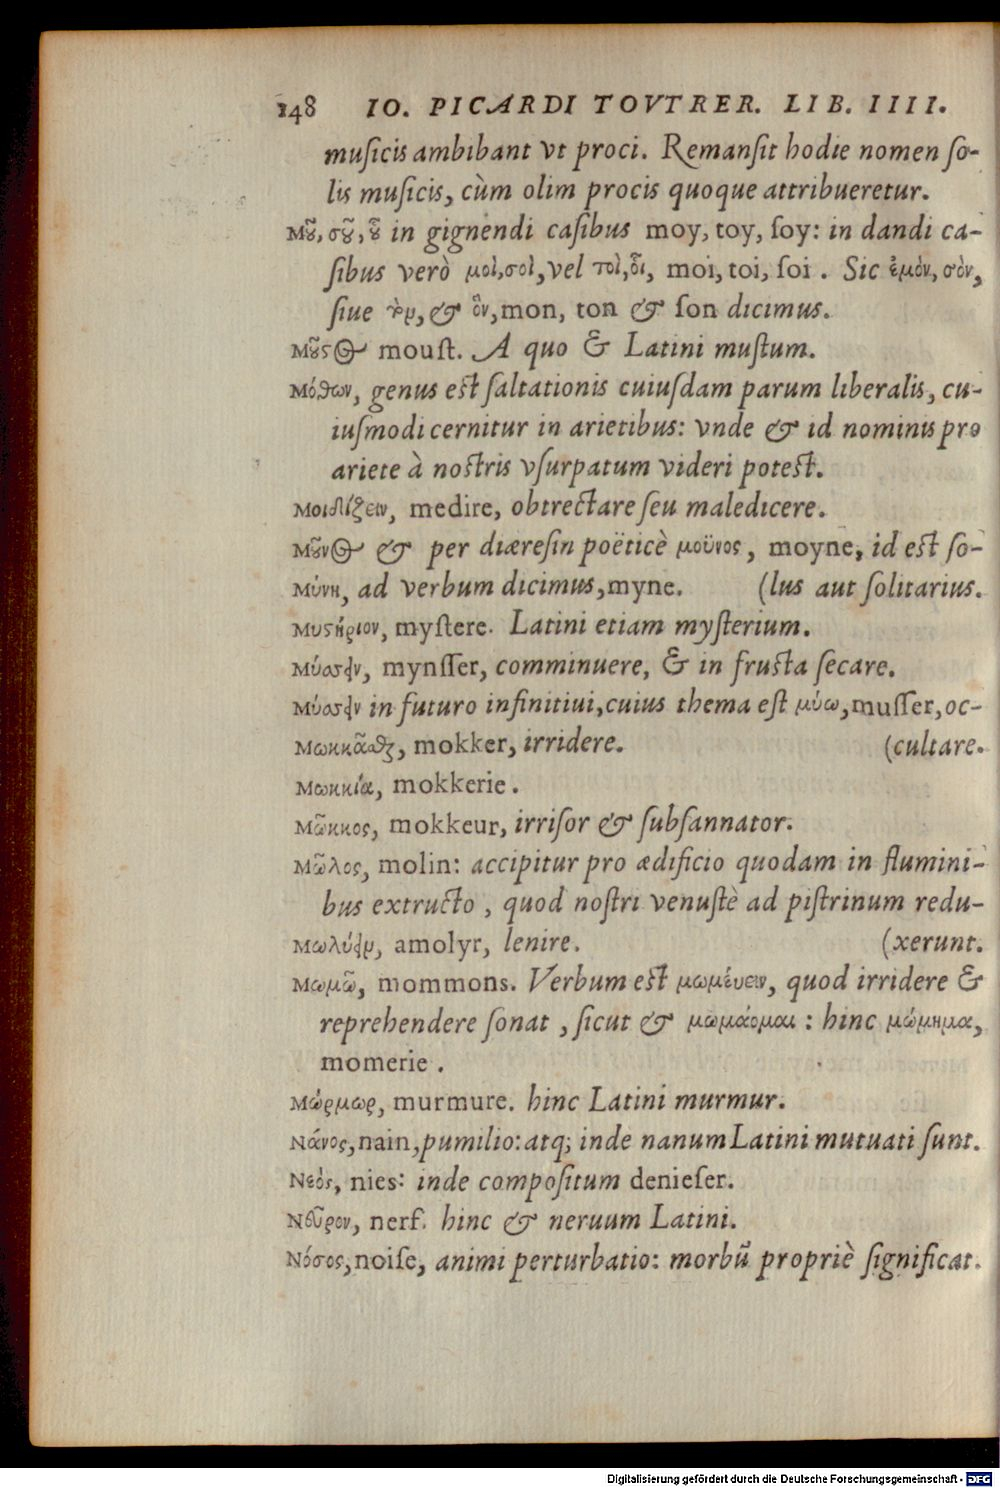 148 IO. PICARDI TOVTRER. LIB. IIII.
muſicis ambibant vt proci. Remanſit hodie nomen ſo-
lis muſicis, cùm olim procis quoque attribueretur.
Μȣ͂, σȣ͂, ȣ͂ in gignendi caſibus moy, toy, ſoy: in dandi ca-
ſibus verò μοὶ, σοὶ, vel τοὶ, οἷ, moi, toi, ſoi. Sic ἐμὸν, σὸν,
ſiue τὸν, & ὃν, mon, ton & ſon dicimus.
Μȣ͂ϛος mouſt. A quo & Latini muſtum.
Μόθων, genus eſt ſaltationis cuiuſdam parum liberalis, cu-
iuſmodi cernitur in arietibus: vnde & id nominis pro
ariete à noſtris vſurpatum videri poteſt.
Μοιδίζειν, medire, obtrectare ſeu maledicere.
Μȣ͂νος & per diæreſin poëticè μοϋνος, moyne, id eſt ſo-
Μύνη, ad verbum dicimus, myne. (lus aut ſolitarius.
Μυϛήριον, myſtere. Latini etiam myſterium.
Μύσσειν, mynſſer, comminuere, & in fruſta ſecare.
Μύσσειν in futuro infinitiui, cuius thema eſt μύω, muſſer, oc-
Μωκκᾶσθαι, mokker, irridere. (cultare.
Μωκκία, mokkerie.
Μῶκκος, mokkeur, irriſor & ſubſannator.
Μῶλος, molin: accipitur pro ædificio quodam in flumini-
bus extructo, quod noſtri venuſtè ad piſtrinum redu-
Μωλύειν, amolyr, lenire. (xerunt.
Μωμῶ, mommons. Verbum eſt μωμέυειν, quod irridere &
reprehendere ſonat, ſicut & μωμάομαι: hinc μώμημα,
momerie.
Μώρμωρ, murmure. hinc Latini murmur.
Νάνος, nain, pumilio: atq; inde nanum Latini mutuati ſunt.
Νεὸς, nies: inde compoſitum denieſer.
Νεῦρον, nerf. hinc & neruum Latini.
Νόσος, noiſe, animi perturbatio: morbũ propriè ſignificat.
Digitalisierung gefördert durch die Deutsche Forschungsgemeinschaft - DFG